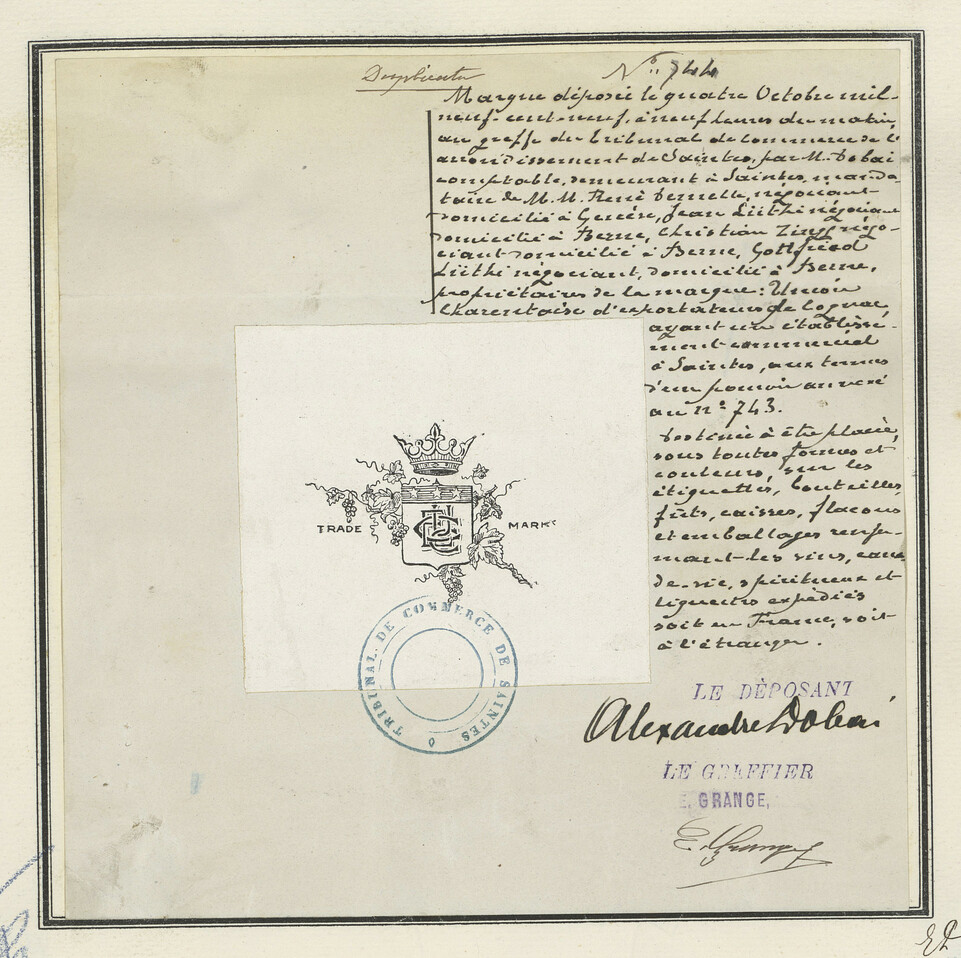 Duplicata
N° 744
Marque déposée le quatre Octobre mil-
neuf-cent-neuf, à neuf heures du matin,
au greffe du tribunal de commerce de l'
arrondissement de Saintes, par M. Dobai
comptable, demeurant à Saintes, manda-
taire de M. M. René Vernette, négociant
domicilié à Genève, Jean Lüthi négociant
domicilié à Berne, Christian Zingg négo-
ciant domicilié à Berne, Gottfried
Lüthi négociant, domicilié à Berne,
propriétaires de la marque: Union
Charentaise d'exportateurs de Cognac,
ayant un établisse-
ment commercial
à Saintes, aux termes
d'un pouvoir annexé
au n° 743.
Destinée à être placée,
sous toutes formes et
couleurs, sur les
étiquettes, bouteilles,
fûts, caisses, flacons
et emballages renfer-
mant les vins, eaux
de-vie, spiritueux et
liqueurs expédiés
soit en France, soit
à l'étranger.
TRADE MARK
TRIBUNAL DE COMMERCE DE SAINTES
LE DÉPOSANT
Alexandre Dobai
LE GREFFIER
E. GRANGE,
E. Grange